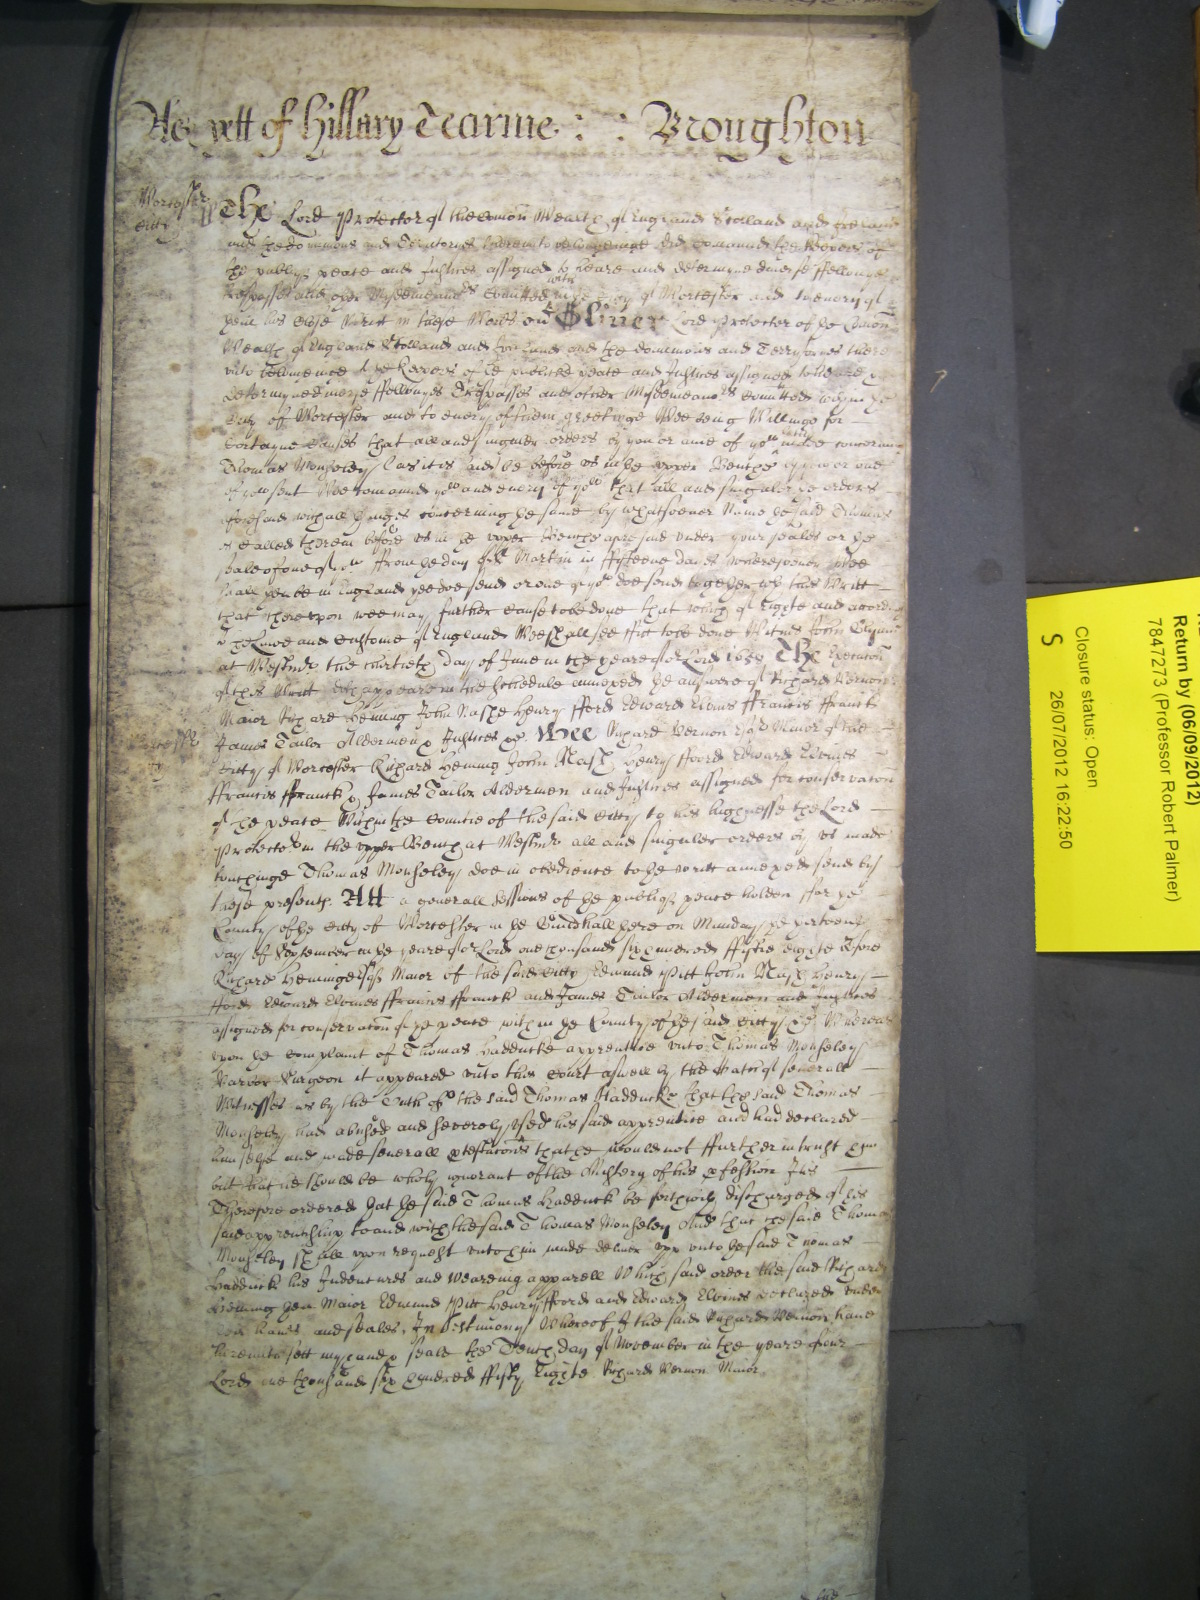 As yett of Hillary Tearme : : Broughton
Worcester
Citty ss
The Lord Protector of the Comon Wealth of England Scotland and Ireland
and the Dominions and Territories thereunto belonginge did Comaund the Keepers of
the publiq peace and Justices assigned to heare and determyne diverse ffellonyes
trespasses and other Misdemeano{rs} Comitted within the Citty of Worcester and to every of
them his Close Writt in these Words Oliver Lord Protector of the Comon
Wealth of England Scotland and Ireland and the dominions and Terrytories there
unto belonginge To the Keepers of the publicke peace and Justices assigned to heare &
determyne diverse ffellonyes Trespasses and other Misdemeano{rs} Comitted within the
Citty of Worcester and to every of them greetinge Wee being Willinge for
Certayne Causes that all and singuler orders by you or anie of you made concerning
Thomas Mouseley as it is said be before us in the upper Benche by you or one
of you sent Wee Comaund you and every of you that all and singuler the orders
aforesaid with all thinges concerning the same by whatsoever Name the said Thomas
is called therein before us in the upper Benche under your seales or the
seale of one of you ffrom the day of St Martin in ffifteene dayes wheresoever wee
shall then be in England yee doe send or one of you doe send together with this Writt
that thereupon wee may further cause to be done that which of Right and accordinge
to the Lawe and Custome of England Wee shall see ffitt to be done Witnes John Glynn
at Westm{r} the thirtieth day of June in the yeare of our Lord 1658 The Execucon
of this Writt appeare in the schedule annexed The answere of Richard Vernon
Maior Richard Heming John Nashe Henry fford Edward Elvins ffrancis ffranck
James Taylor Aldermen & Justices &c Wee Richard Vernon Esq{r} Maior of the
Citty of Worcester Richard Heming John Nash Henry fford Edward Elvines
ffrancis ffranck & James Taylor Aldermen and Justices assigned for conservacon
of the peace Within the Countie of the said Citty to his highnesse the Lord
Protector in the upper Bench at Westm{r} all and singuler orders by us made
touchinge Thomas Mouseley doe in obedience to the writt annexed send by
these presents Att a generall Sessions of the publiq peace holden for the
County of the Citty of Worcester in the Guildhall there on Munday the
day of September in the yeare of our Lord one thousand six hundred ffiftie eighte before
Richard Heminge Maior of the said Citty Edmund Pitt John Nash Henry
fford Edward Elvines ffrancis ffranck and James Taylor Aldermen and Justices
assigned for conservacon of the peace within the County of the said Citty &c Whereas
upon the complaint of Thomas Hadducke apprentice unto Thomas Mouseley
Barber Surgeon it appeared unto this Court aswell by the oathes of severall
Witnesses as by the Oath of the said Thomas Hadducke that the said Thomas
Mouseley had abused and severely used his said apprentice and had declared
himselfe and made severall protestacons that he would not ffurther instruct him
but that he should be wholy ignorant of the Mistery of his profession It is
Therefore ordered that the said Thomas Hadduck be forthwith discharged of his
said apprentiship to and with the said Thomas Mouseley And that the said Thomas
Mouseley shall upon request unto him made deliver upp unto the said Thomas
Hadduck his Indentures and Wearing apparell Which said order the said Richard
Heming then Maior Edmund Pitt Henry fford and Edward Elvines declared under
their hands and seales. In Testimony Whereof I the said Richard Vernon have
hereunto sett my hand & seale the Tenth day of November in the yeare of our
Lord one thousand six hundred ffifty Eighte Richard Vernon Maior
Return by (06/09/2012)
7847273 (Professor Robert Palmer)
Closure status: Open
S 26/07/2012 16:22:50